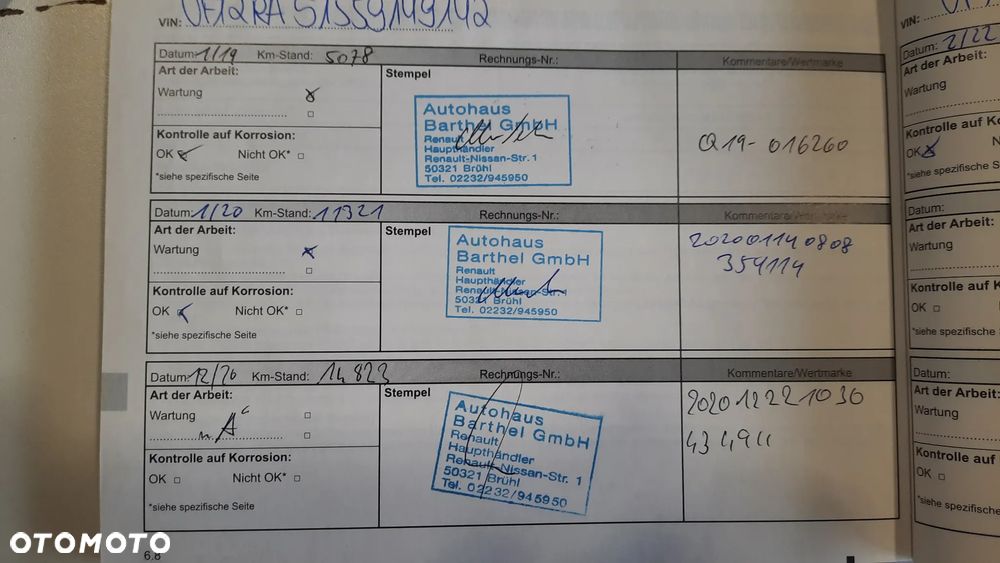 VIN: VF12RA51559149142
Datum: 1/19 Km-Stand: 5078 Rechnungs-Nr.: Kommentare/Wertmarke
Art der Arbeit: Stempel
Wartung
Kontrolle auf Korrosion:
OK Nicht OK*
*siehe spezifische Seite
Autohaus
Barthel GmbH
Renault
Haupthändler
Renault-Nissan-Str. 1
50321 Brühl
Tel. 02232/945950
Q19-016260
Datum: 1/20 Km-Stand: 11321 Rechnungs-Nr.: Kommentare/Wertmarke
Art der Arbeit: Stempel
Wartung
Kontrolle auf Korrosion:
OK Nicht OK*
*siehe spezifische Seite
Autohaus
Barthel GmbH
Renault
Haupthändler
Renault-Nissan-Str. 1
50321 Brühl
Tel. 02232/945950
202001140808
354114
Datum: 12/20 Km-Stand: 14823 Rechnungs-Nr.: Kommentare/Wertmarke
Art der Arbeit: Stempel
Wartung
Kontrolle auf Korrosion:
OK Nicht OK*
*siehe spezifische Seite
Autohaus
Barthel GmbH
Renault
Haupthändler
Renault-Nissan-Str. 1
50321 Brühl
Tel. 02232/945950
202012221030
434944
6.8
VIN:
Datum: 2/22
Art der Arbeit:
Wartung
Kontrolle auf
OK
*siehe spezifische
Datum:
Art der Arbeit:
Wartung
Kontrolle auf
OK
*siehe spezifische
Datum:
Art der Arbeit:
Wartung
Kontrolle auf
OK
*siehe spezifische
OTOMOTO